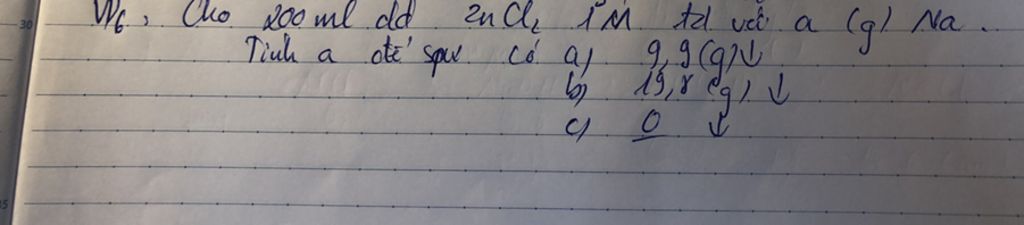 VD6: Cho 200 ml dd ZnCl2 1M td với a (g) Na.
Tính a để spư có a) 9,9 (g) ↓
b) 19,8 (g) ↓
c) 0 ↓